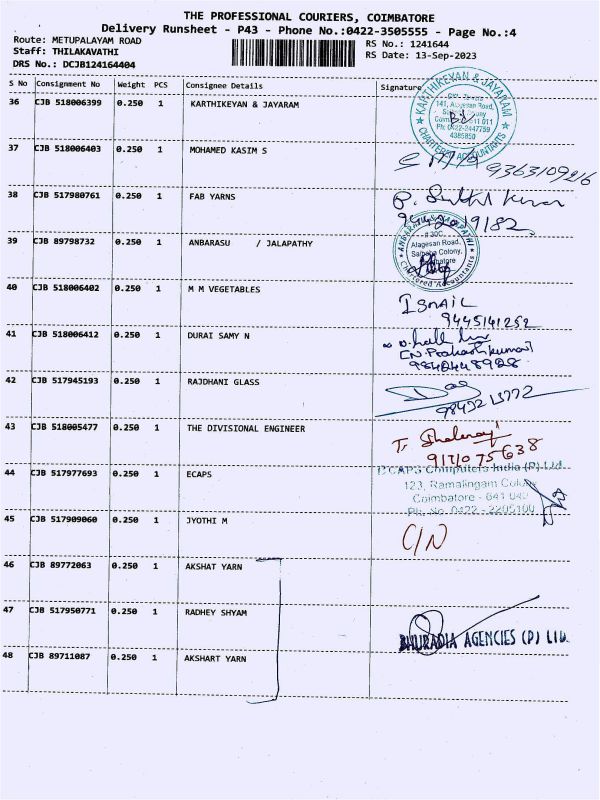 THE PROFESSIONAL COURIERS, COIMBATORE
Delivery Runsheet - P43 - Phone No.:0422-3505555 - Page No.:4
Route: METUPALAYAM ROAD
Staff: THILAKAVATHI
DRS No.: DCJB124164404
RS No.: 1241644
RS Date: 13-Sep-2023
S No Consignment No Weight PCS Consignee Details Signature
36 CJB 518006399 0.250 1 KARTHIKEYAN & JAYARAM
KARTHIKEYAN & JAYARAM
141, Alagesan Road,
CHARTERED ACCOUNTANTS
37 CJB 518006403 0.250 1 MOHAMED KASIM S
9363109216
38 CJB 517980761 0.250 1 FAB YARNS
39 CJB 89798732 0.250 1 ANBARASU / JALAPATHY
Alagesan Road,
Saibaba Colony,
Chartered Accountants
40 CJB 518006402 0.250 1 M M VEGETABLES
ISMAIL
9445141252
41 CJB 518006412 0.250 1 DURAI SAMY N
9842448928
42 CJB 517945193 0.250 1 RAJDHANI GLASS
43 CJB 518005477 0.250 1 THE DIVISIONAL ENGINEER
44 CJB 517977693 0.250 1 ECAPS
ECAPS Computers India (P) Ltd.
123, Ramalingam Colony
Coimbatore - 641 040
Ph. No. 0422 - 2205100
45 CJB 517909060 0.250 1 JYOTHI M
C/N
46 CJB 89772063 0.250 1 AKSHAT YARN
47 CJB 517950771 0.250 1 RADHEY SHYAM
BHURADIA AGENCIES (P) LTD.
48 CJB 89711087 0.250 1 AKSHART YARN